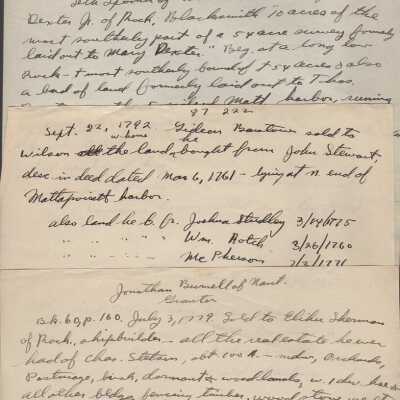 Dexter Jr. of Roch., Blacksmith "10 acres of the
most southerly part of a 54 acre survey formerly
laid out to Mary Dexter." Beg. at a long low
rock - + most southerly bound of + 54 acres + also
a bed of land formerly laid out to Thos.
harbor, running
97 222
Sept. 22, 1792 Gideon Barstow sold to
Wilson all the land he bought from John Stewart
desc. in deed dated Mar 6, 1761 - lying at n end of
Mattapoisett harbor.
also land he b. fr. Joshua Studley 3/14/1775
" " " " " Wm. Rotch 3/26/1760
" " " " " McPherson 7/2/1771
Jonathan Bunnell of Nant.
Grantor
Bk. 60, p. 160. July 3, 1779. Sold to Elihu Sherman
of Roch., shipbuilder - all the real estate he ever
had of Chas. Stetson, abt 100 A. - mdw, Orchards,
Pasturage, and woodlands, w. 1 dw. hse +
all other bldgs, fencing timber, wood, stone